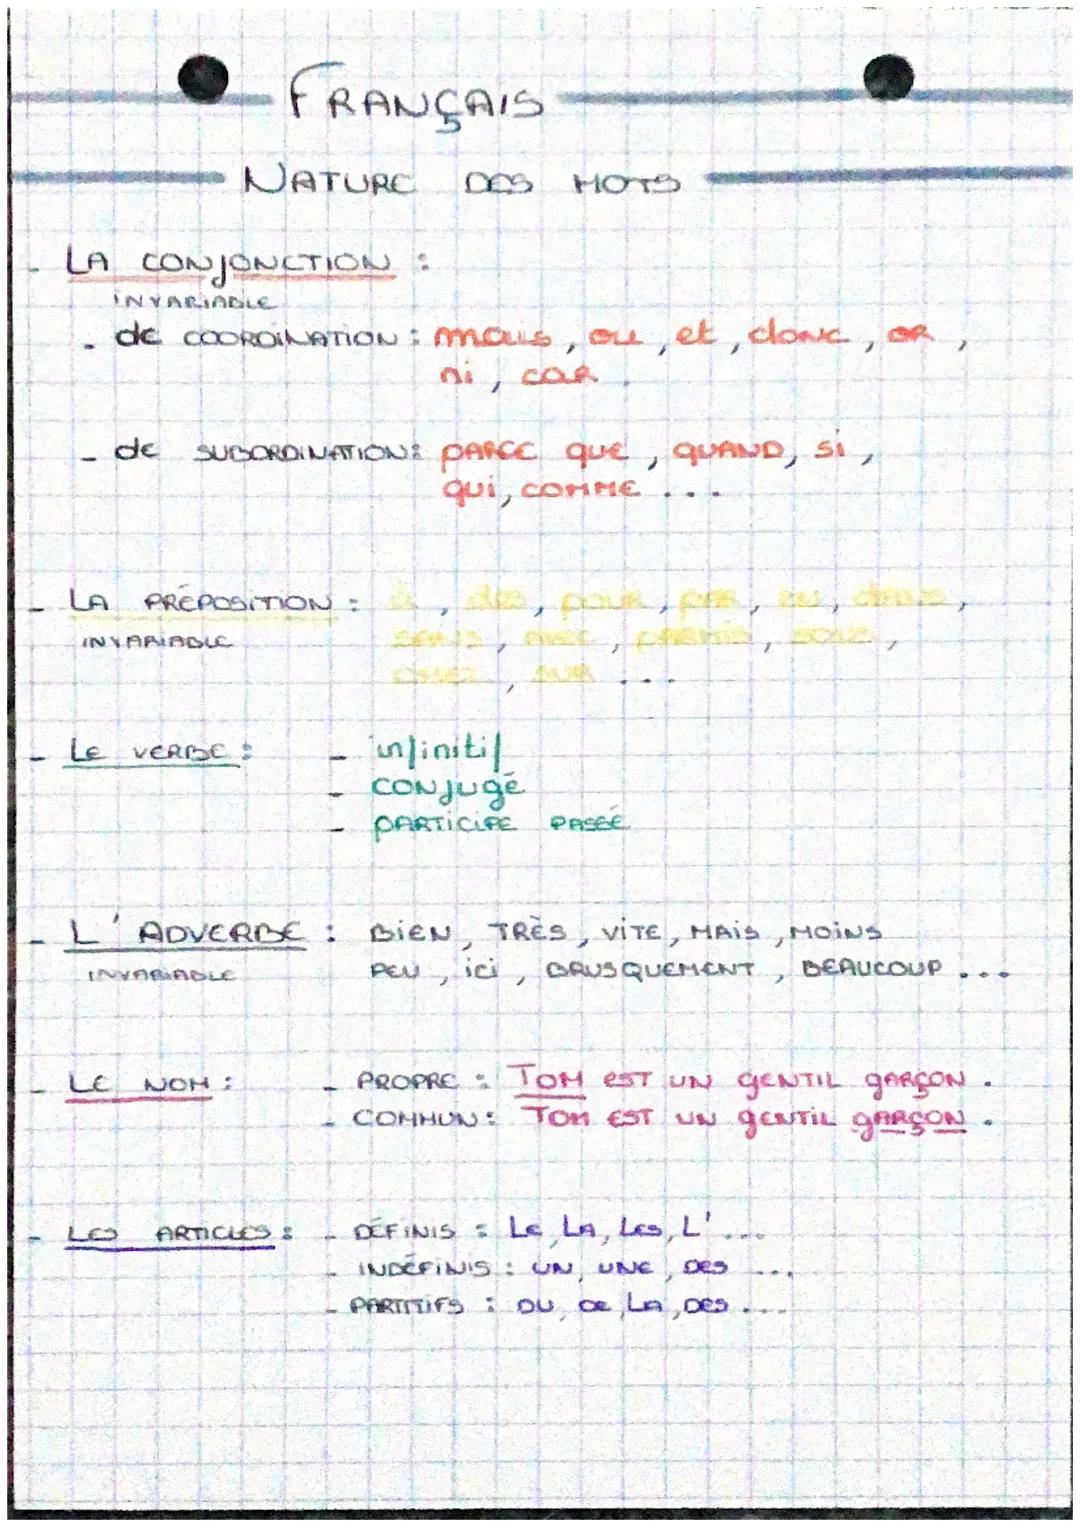 FRANÇAIS
NATURE DES MOTS
- LA CONJONCTION :
INVARIABLE
- de COORDINATION : mais, ou, et, donc, OR,
ni, car.
- de SUBORDINATION : PARCE que, QUAND, si,
qui, COMME ...
- LA PRÉPOSITION : à, des, pour, par, EN, dans,
INVARIABLE SANS, AVEC, PARMIS, SOUS,
CHEZ, SUR ...
- LE VERBE : - infinitif
- CONJUgé
- PARTICIPE PASSÉ
- L'ADVERBE : BIEN, TRÈS, VITE, MAIS, MOINS
INVARIABLE PEU, ici, BRUSQUEMENT, BEAUCOUP ...
- LE NOM : - PROPRE : TOM EST UN GENTIL GARÇON.
- COMMUN : TOM EST UN GENTIL GARÇON.
- LES ARTICLES : - DÉFINIS : LE, LA, LES, L' ...
- INDÉFINIS : UN, UNE, DES ...
- PARTITIFS : DU, DE LA, DES ...